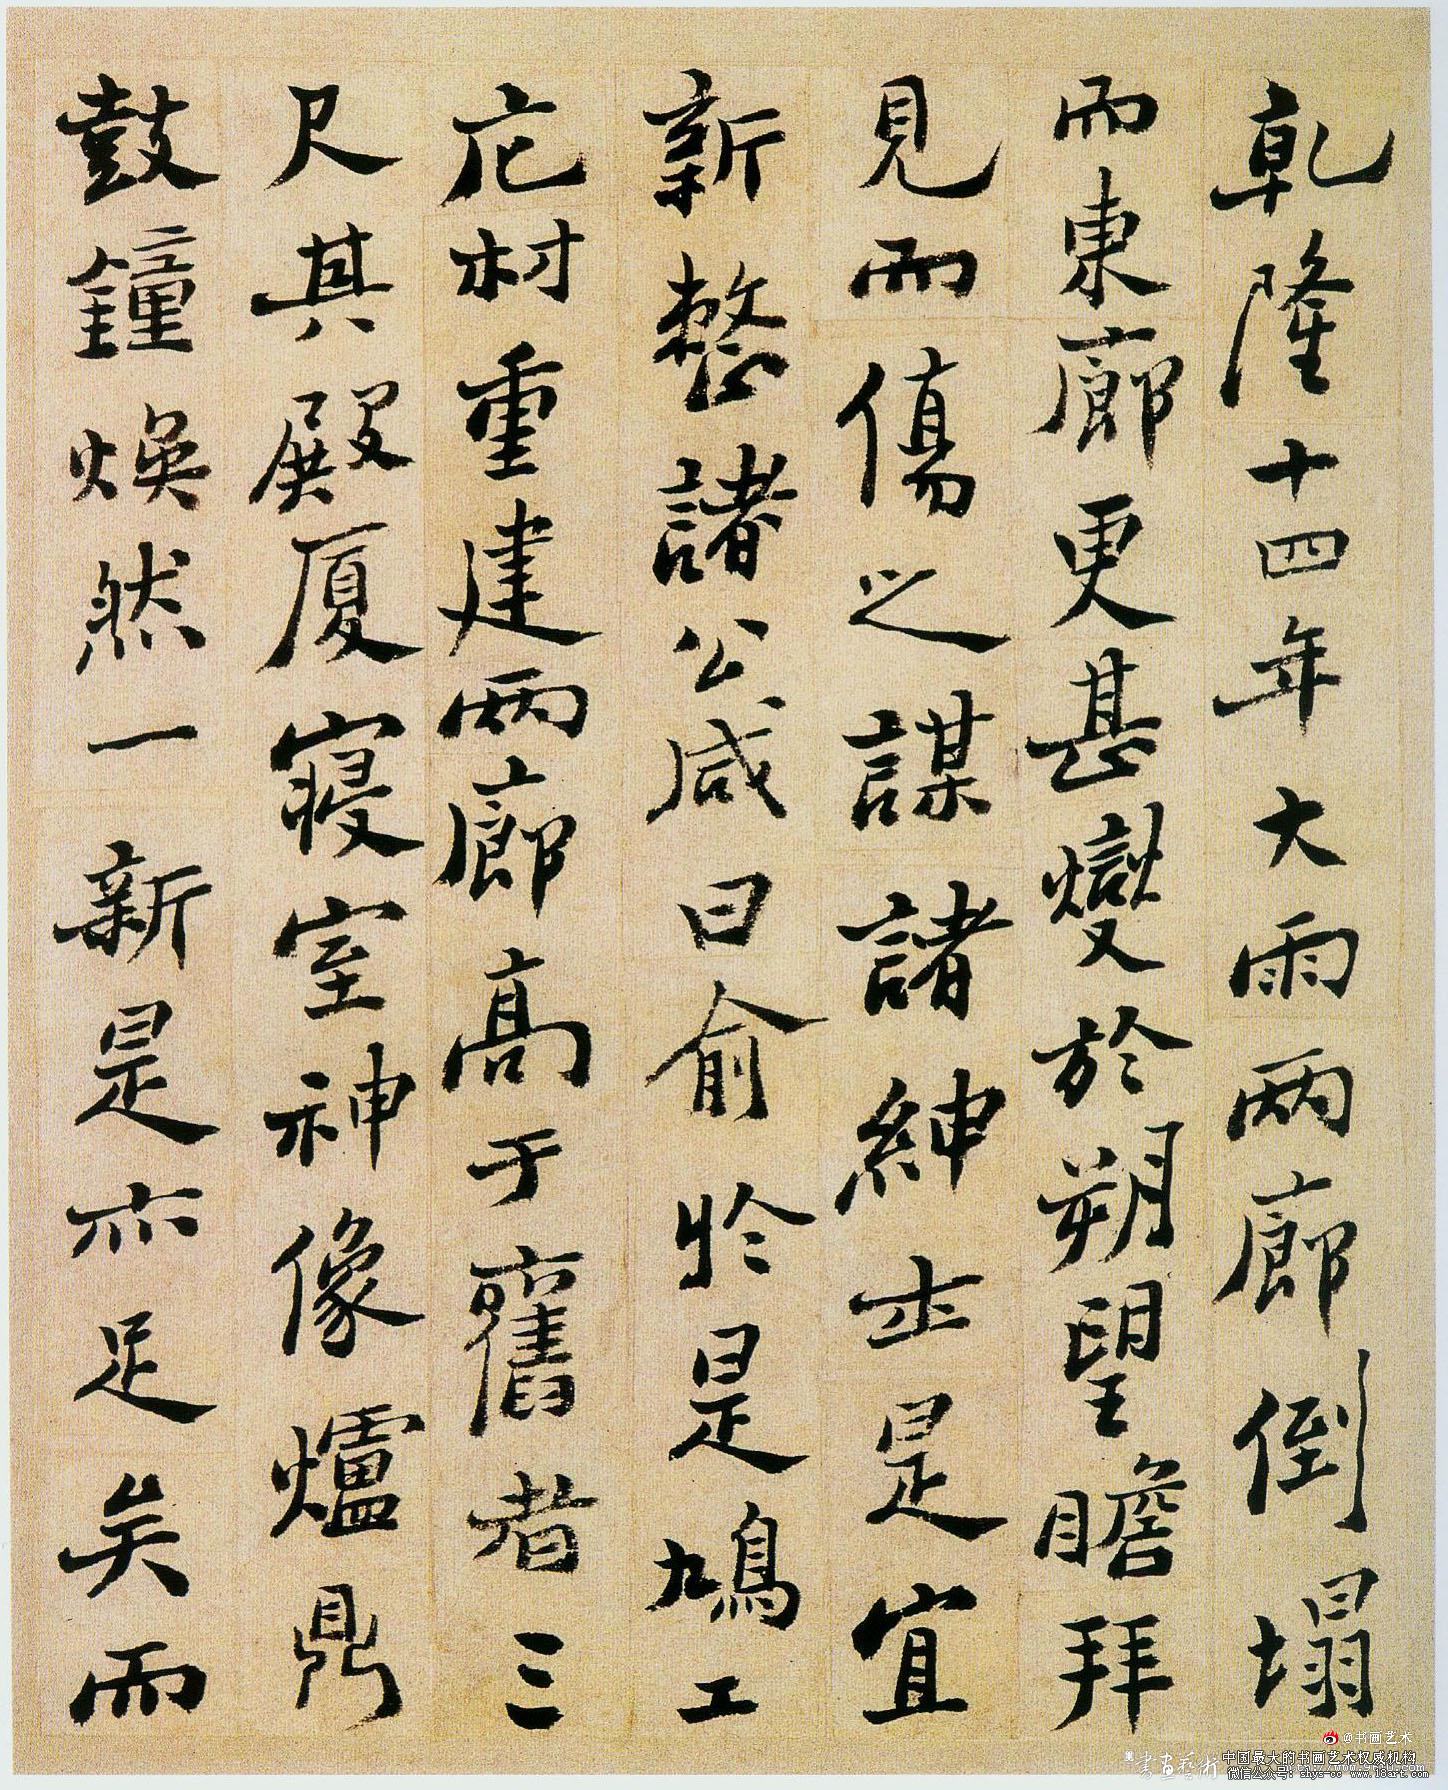 乾隆十四年大雨兩廊倒塌
而東廊更甚燮於朔望瞻拜
見而傷之謀諸紳士是宜
新整諸公咸曰俞於是鳩工
庀材重建兩廊高于舊者三
尺其殿厦寢室神像爐鼎
鼓鐘煥然一新是亦足矣而
@书画艺术
書画藝術
中国最大的书画艺术权威机构
微信公众号：shys-cc www.18art.com